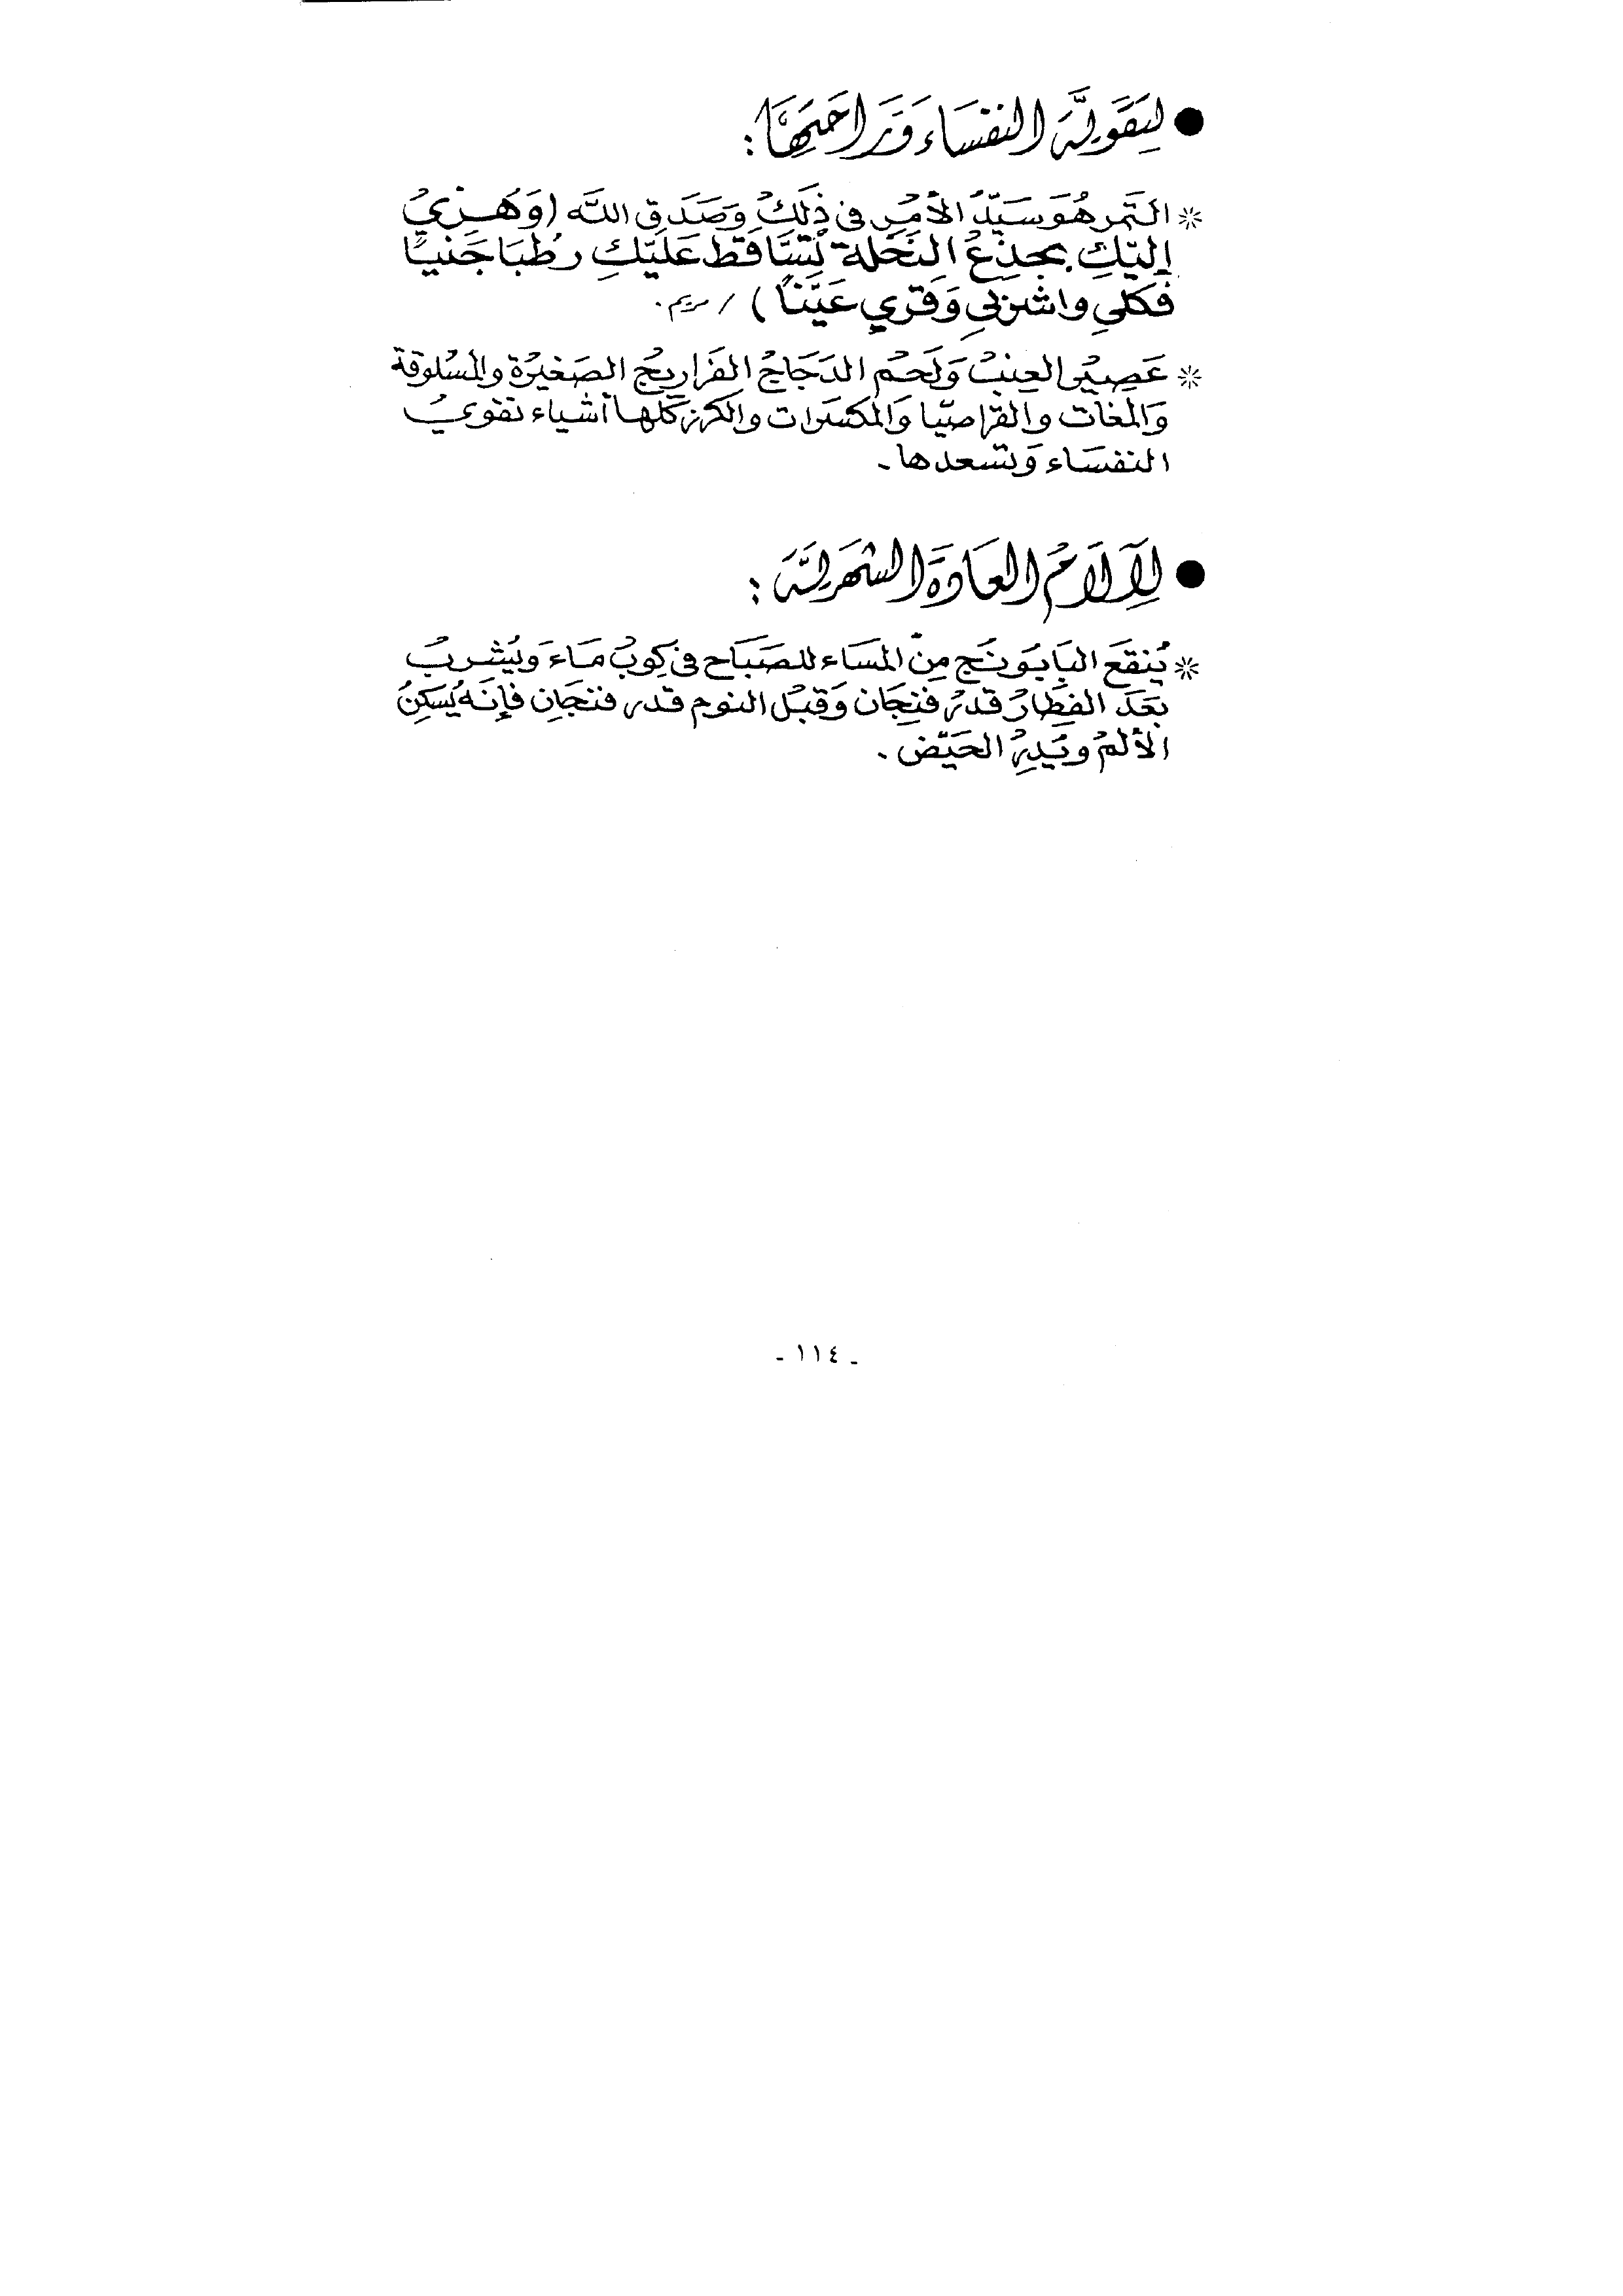 ● لِتَقَوِيَّة النفسَاء وَرَاحَتِهَا:
* التَمر هُوَ سَيّدُ الأمْرِ فى ذلكْ وَصَدَق اللَّه (وَهُـزِي
إليْكِ بجذعْ النَخْلة تُسَّاقط عَليْكِ رُطبَا جَنيًا
فَكلي واشرَبي وَقري عَيْنًا) / مريم.
* عَصِيْر العِنبْ وَلحْم الدَجَاجْ الفَراريجْ الصَغيرْة والمسْلوقة
وَالمغات والقراصيْا وَالمكسَرات والكرز كلها أشياء تقوي
النفسَاء وَتسعدها .
● لِآلَامْ العَادَة الشهَريَّة :
* يُنقعَ البَابوَنَج مِنْ المسَاء للصَبَاح فى كوبْ مَاء وَيُشرب
بَعْدَ الفِطارْ قدرْ فنجَان وَقبْل النوم قدر فنجَان فإنَه يُسَكِنُ
الألمْ ويُدِرْ الحَيْض .
- ١١٤ -